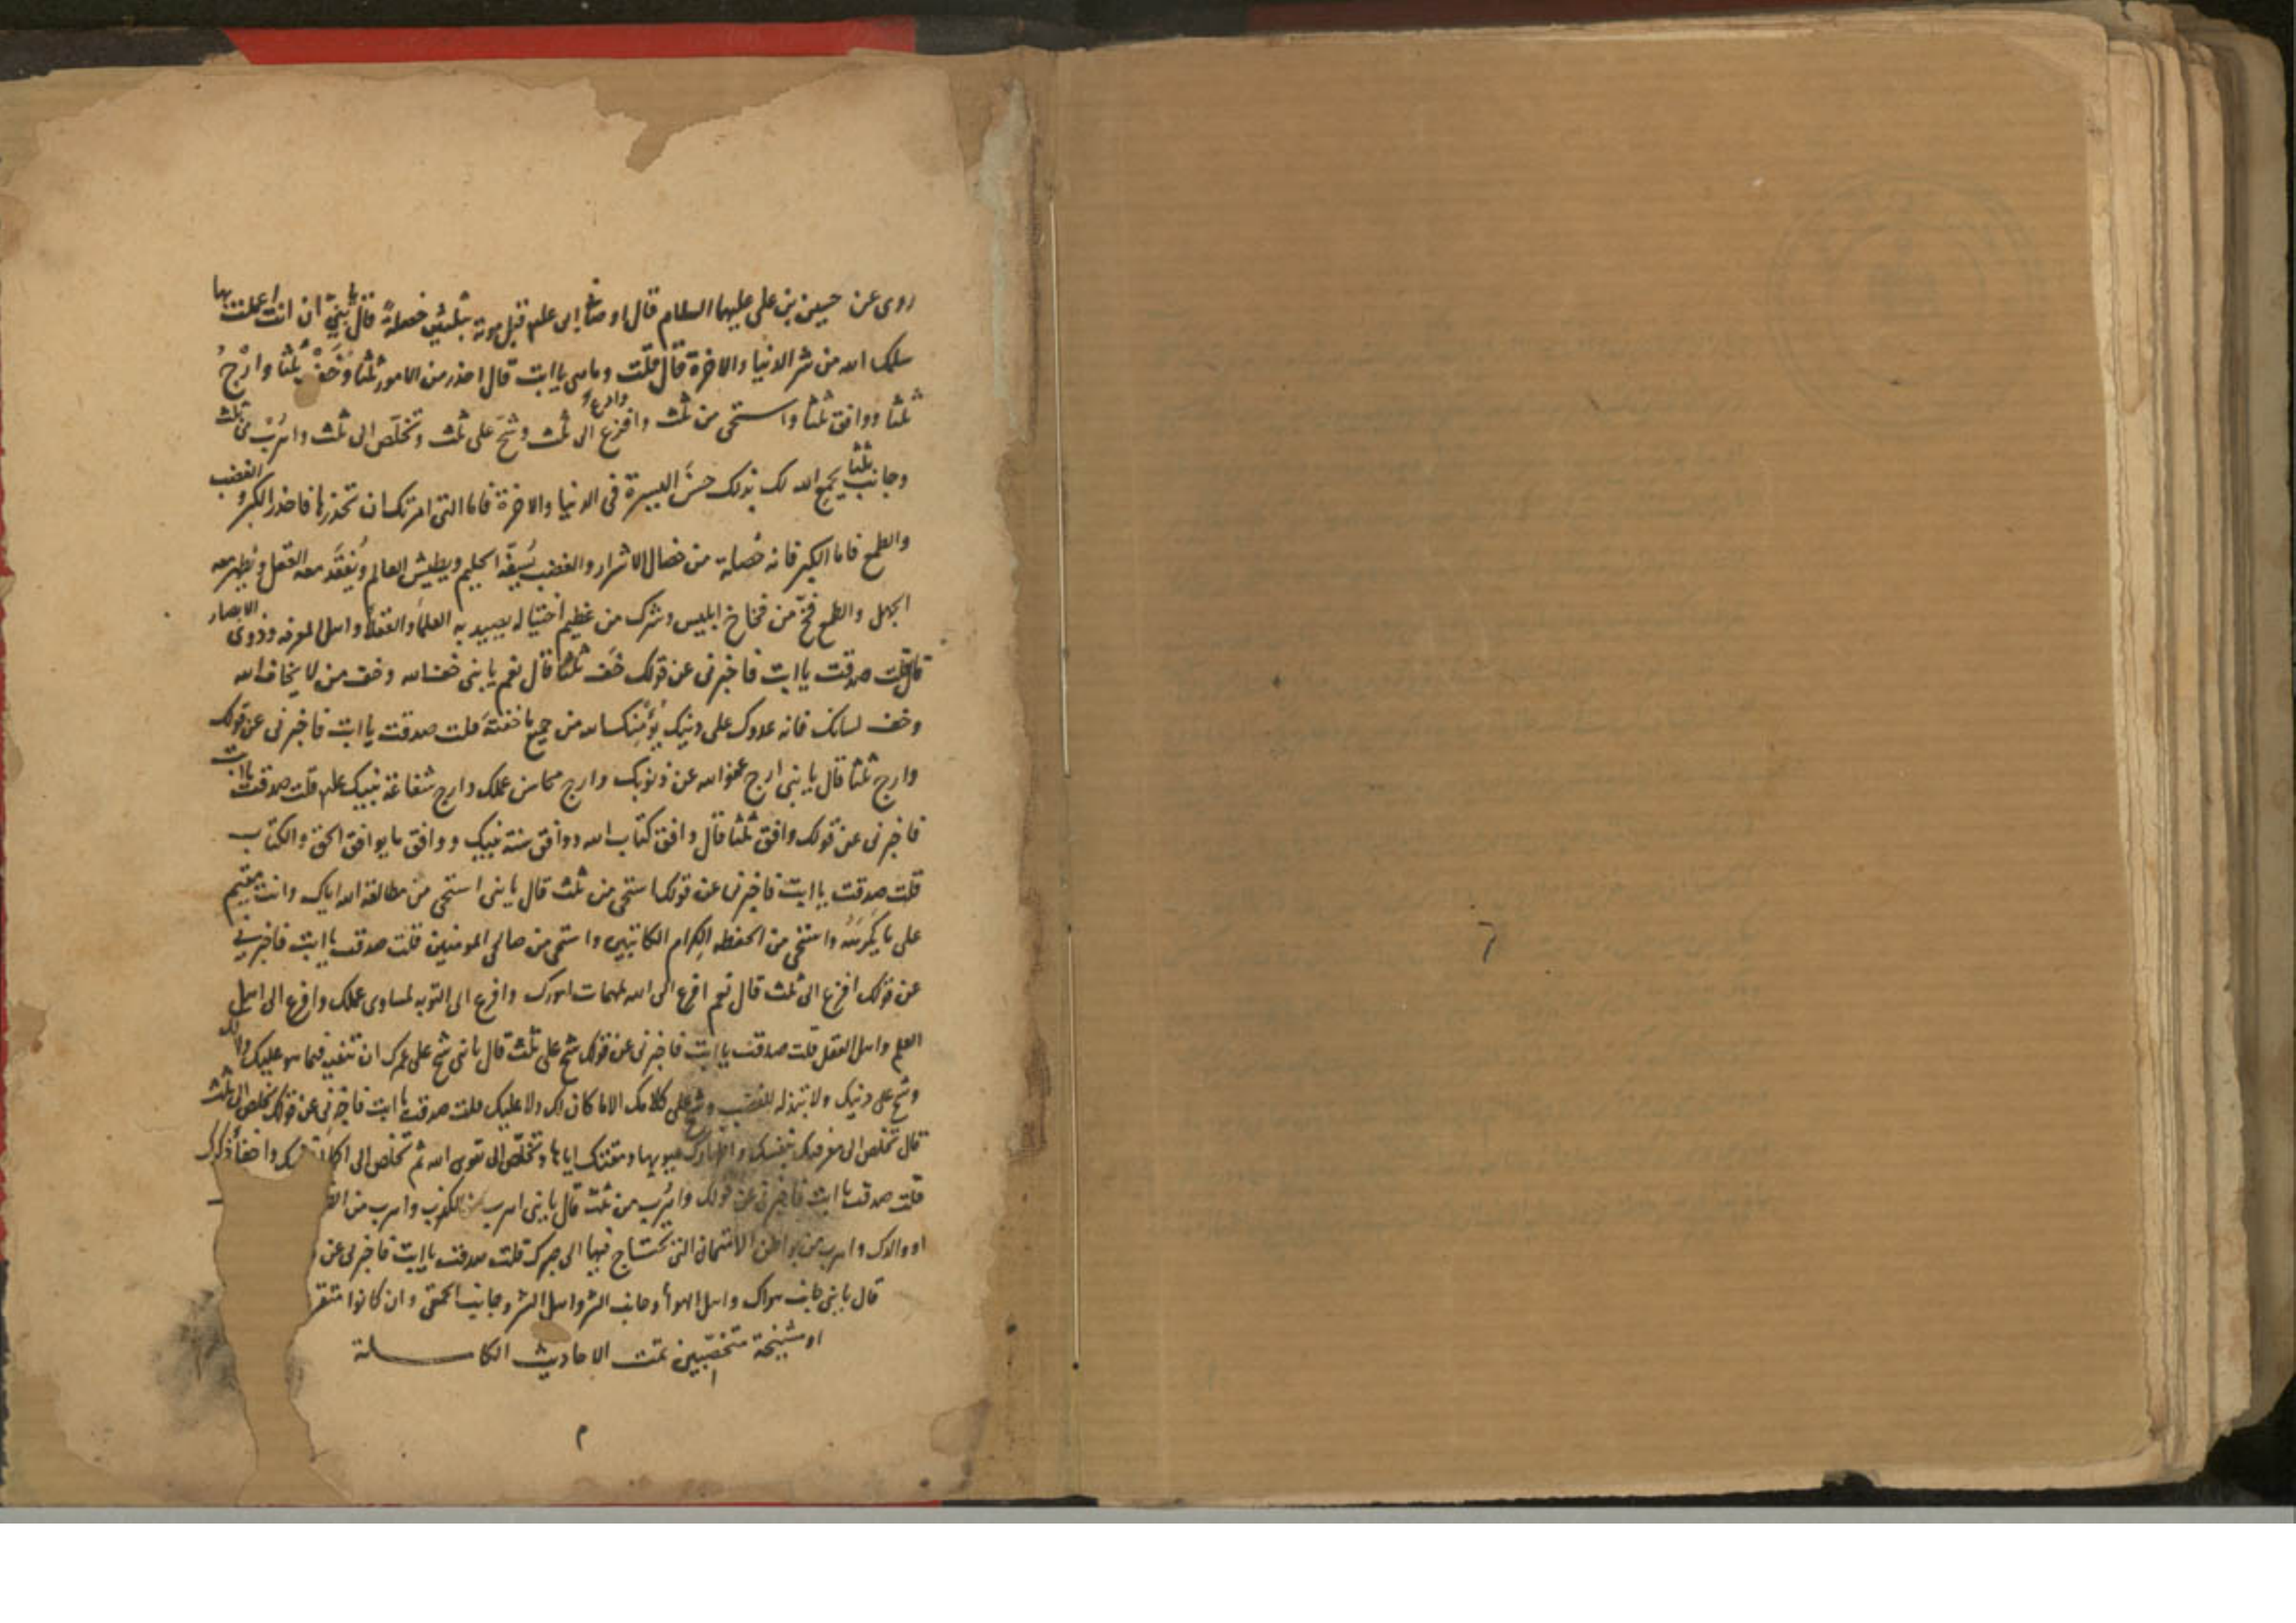 روى عن حسين بن على عليهما السلام قال اوصانى ابى علم قبل موته بثلثين خصلة قال يا بنى ان انت عملت بها
سلمك الله من شر الدنيا والاخرة قال قلت وما هى يا ابت قال احذر من الامور ثلثا وَخَفْ ثلثا وارْجُ
ثلثا ووافق ثلثا واستحى من ثلث وافزع الى ثلث وشحّ على ثلث وتخلّص الى ثلث واهرب من ثلث
وجانب ثلثا يجمع الله لك بذلك حسن السيرة فى الدنيا والاخرة فاما التى امرتك ان تحذرها فاحذر الكبر والغضب
والطمع فاما الكبر فانه خصلة من خصال الاشرار والغضب يُسفّه الحليم ويطيش العالم ويُفقَد معه العقل ويظهر معه
الجهل والطمع فخّ من فخاخ ابليس وشرك من عظيم احتياله يصيد به العلماء والعقلاء واهل المعرفه وذوى الابصار
قال قلت صدقت يا ابت فاخبرنى عن قولك خف ثلثا قال نعم يا بنى خف الله وخف من لا يخاف الله
وخف لسانك فانه عدوك على دينك يؤمنك الله من جميع ما خفته قلت صدقت يا ابت فاخبرنى عن قولك
وارج ثلثا قال يا بنى ارج عفو الله عن ذنوبك وارج محاسن عملك وارج شفاعة نبيك علم قلت صدقت يا ابت
فاخبرنى عن قولك وافق ثلثا قال وافق كتاب الله ووافق سنة نبيك ووافق ما يوافق الحق والكتاب
قلت صدقت يا ابت فاخبرنى عن قولك استحى من ثلث قال يا بنى استحى من مطالعة الله اياك وانت مقيم
على ما يكرهه واستحى من الحفظه الكرام الكاتبين واستحى من صالحى المومنين قلت صدقت يا ابت فاخبرنى
عن قولك افزع الى ثلث قال نعم افزع الى الله لمهمات امورك وافزع الى التوبه لمساوى عملك وافزع الى اهل
العلم واهل العقل قلت صدقت يا ابت فاخبرنى عن قولك شح على ثلث قال يا بنى شح على عمرك ان تفنيه فيما هو عليك لا لك
وشح على دينك ولا تبذله للغضب وشح على كلامك الا ما كان لك ولا عليك قلت صدقت يا ابت فاخبرنى عن قولك تخلص الى ثلث
قال تخلص الى معرفتك بنفسك واظهارك عيوبها ومقتك اياها وتخلّص الى تقوى الله ثم تخلص الى واخفاء ذكرك
قلت صدقت يا ابت فاخبرنى عن قولك واهرب من ثلث قال يا بنى اهرب من الكذب واهرب من
او والدك واهرب من مواطن الامتحان التى تحتاج فيها الى صبرك قلت صدقت يا ابت فاخبرنى عن
قال يا بنى جانب هواك واهل الهوأ وجانب الشر واهل الشر وجانب الحمقى وان كانوا
او مشيخة تمت الاحاديث الكاملة
م